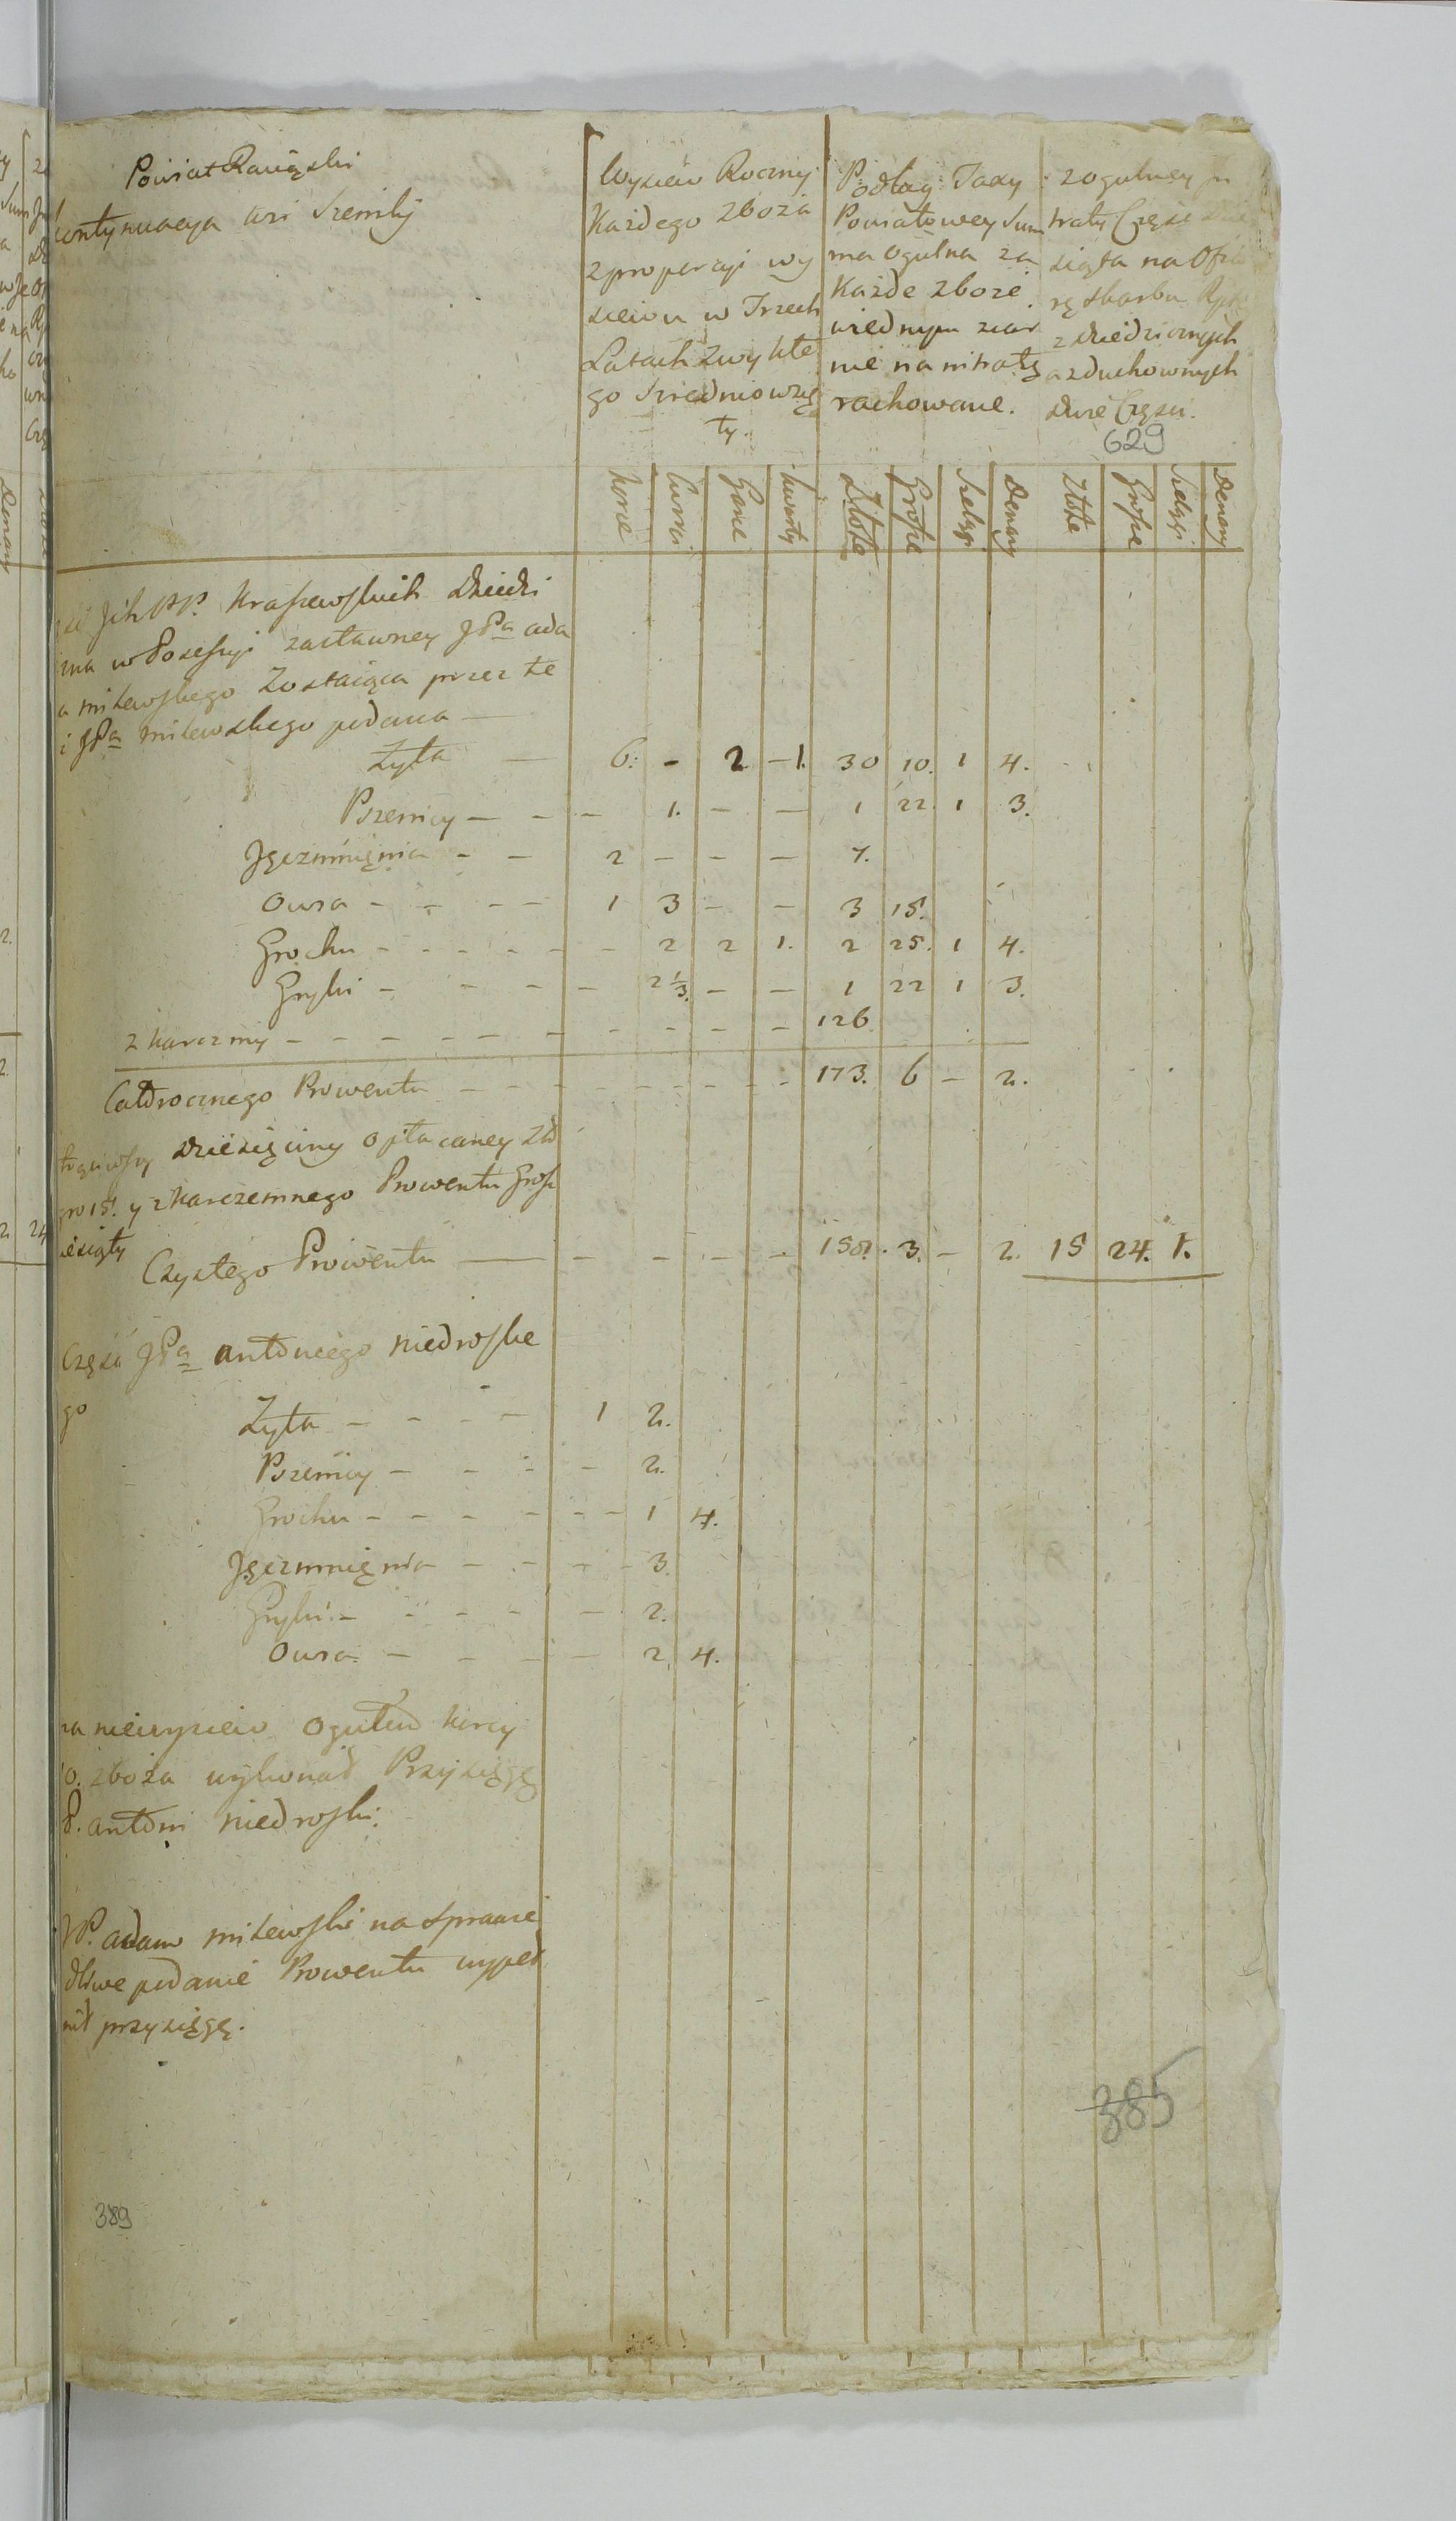 Powiat Rawski
kontynuacya wsi Sremlij
Wysiew Roczny
Każdego Zboża
z proporcyi wy
siewu w Trzech
Latach Zwykłe
go Srzedniowzię
ty.
Podług Taxy
Powiatowey Sum
ma ogulna za
Każde zboże
wiednym ziar
nie na intratę
rachowane.
z ogulney in
traty Częśc dzie
siąta na Ofia
rę skarbu Rptey
z dziedzicznych
a z duchownych
dwie Części.
629
Korce Cwierci Garce kwarty Złote Grosze Szelągi Denary Złote Grosze Szelągi Denary
Jch PP. Kraszewskich Dziedzi
zna w Posessyi zastawney JPa ada
a milewskiego Zostaiąca przez te
i JPa milewskiego podana —
Zyta — 6: - 2 - 1. 30 10. 1 4.
Pszenicy — - — 1. — — 1 22. 1 3.
Jęczmięnia - - 2 — — — 7.
owsa - - - - 1 3 — — 3 15.
Grochu - - - - - - 2 2 1. 2 25. 1 4.
Gryki - - - - 2 1/3. — — 1 22 1 3.
z karczmy - - - - - - - - - - 126
Całorocznego Prowentu - - - - - - - - 173. 6 - 2.
trąciwszy dziesięciny opłacaney Zł
gro 15. y z karczemnego Prowentu Grosz
iesiąty
Czystego Prowentu — - - - - 158. 3. - 2. 15 24. 1.
Częsć JPa antoniego niedroskie
go
Zyta - - - - 1 2.
Pszenicy - - - - 2.
Grochu - - - - - - 1 4.
Jęczmnięnia - - - - 3.
Gryki - - - - - 2.
owsa - - - - 2 4.
na nieiwysiew ogułem korcy
10. zboża wykonał Przysięgę
P. antoni niedroski.
JP. adam milewski na sprawie
dliwe podanie Prowentu wypeł
nił przysięgę.
385
389